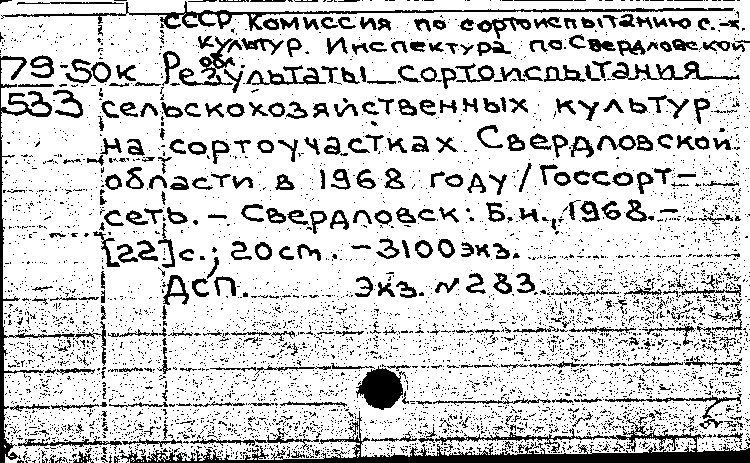 СССР. Комиссия по сортоиспытанию с.-х.
культур. Инспектура по Свердловской
обл.
79-50к Результаты сортоиспытания
533 сельскохозяйственных культур
на сортоучастках Свердловской
области в 1968 году/Госсорт-
сеть. - Свердловск: Б.и., 1968. -
[22]с.; 20 cm. - 3100экз.
ДСП. Экз. № 283.